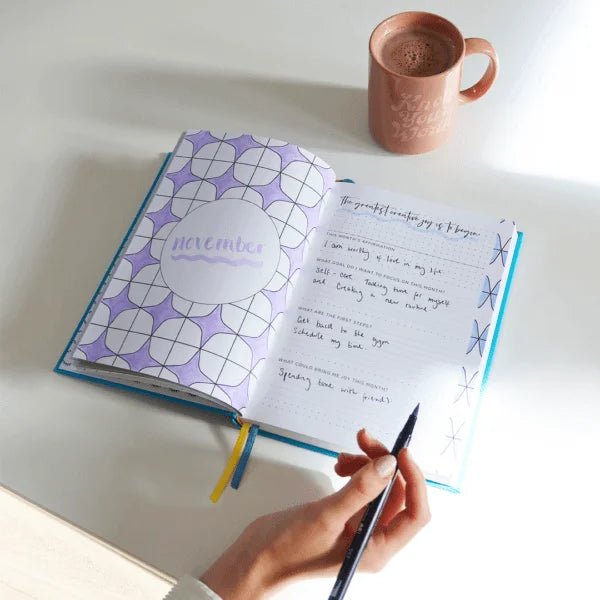 Know
Your
Worth
november
The greatest creative joy is to begin
THIS MONTH'S AFFIRMATION
I am worthy of love in my life.
WHAT GOAL DO I WANT TO FOCUS ON THIS MONTH?
Self-care Taking time for myself
and Creating a new routine.
WHAT ARE THE FIRST STEPS?
Get back to the gym
Schedule my time.
WHAT COULD BRING ME JOY THIS MONTH?
Spending time with friends